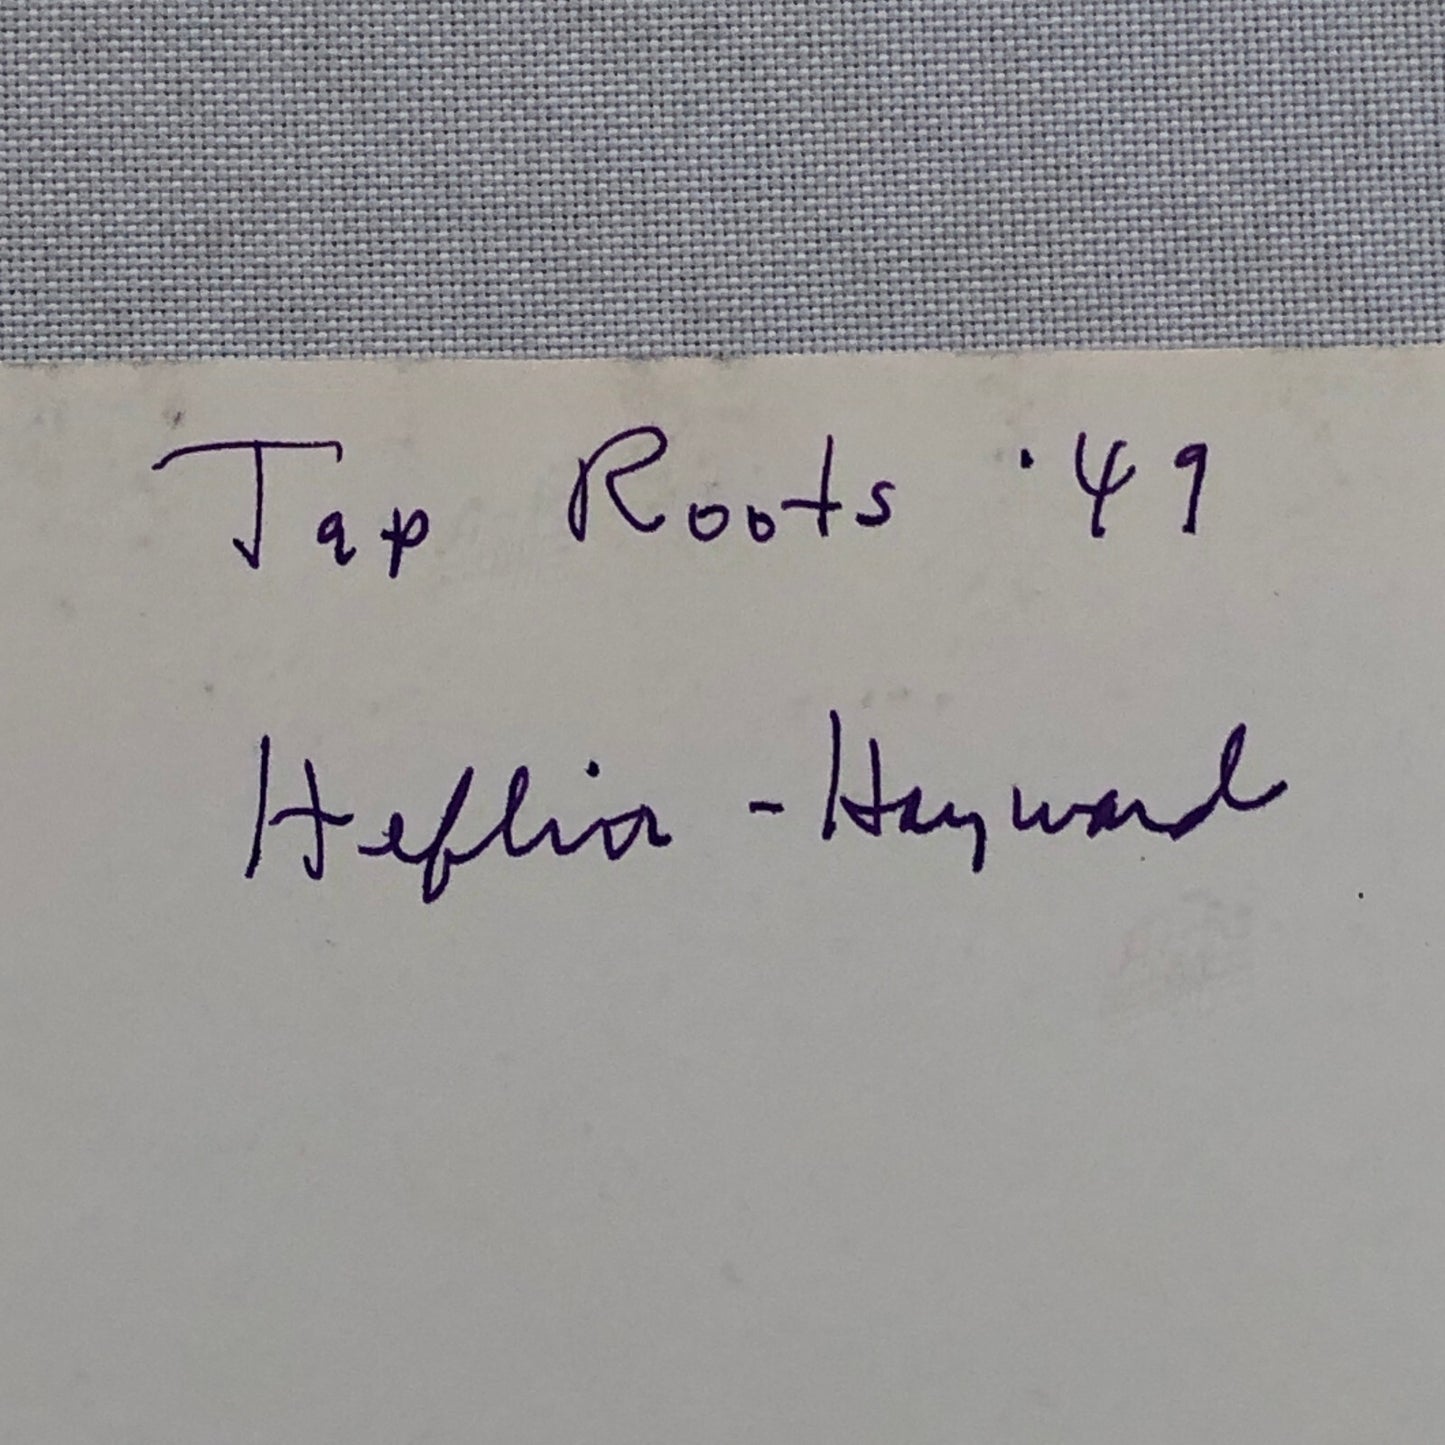 Tap Roots '49
Heflin - Hayward